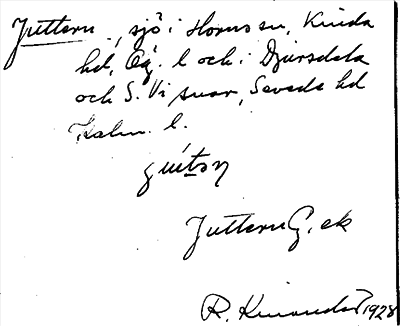 Juttern, sjö i Horns sn, Kinda
hd, Ög. l. och i Djursdala
och S. Vi snar, Sevede hd
Kalm. l.
Juttern G. ek
R. 1928